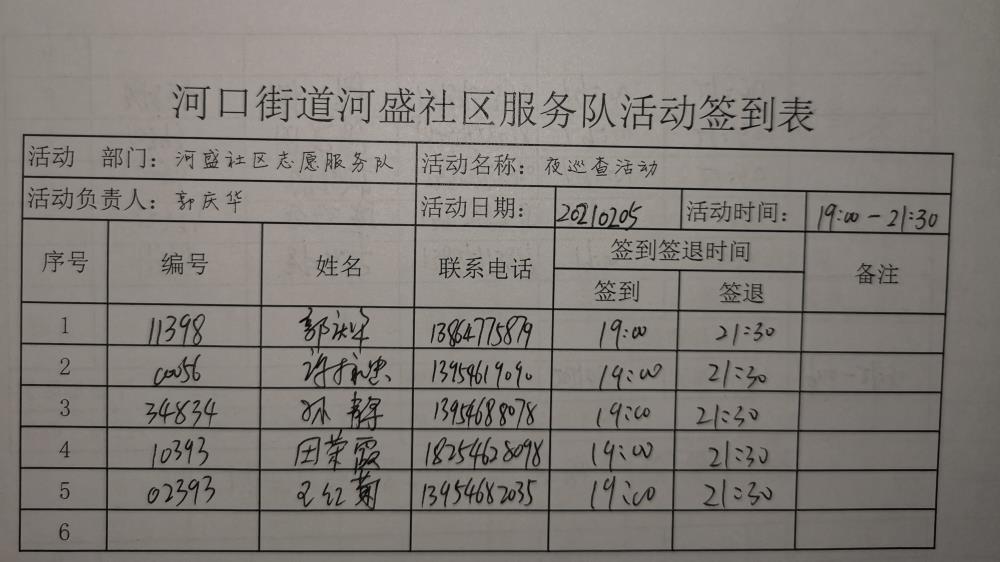 河口街道河盛社区服务队活动签到表
活动 部门：河盛社区志愿服务队 活动名称：夜巡查活动
活动负责人：郭庆华 活动日期：20210205 活动时间：19:00-21:30
序号 编号 姓名 联系电话 签到签退时间 备注
签到 签退
1 11398 郭庆华 13864775879 19:00 21:30
2 00056 13954619090 19:00 21:30
3 34834 孙静 13954688078 19:00 21:30
4 10393 田荣霞 18254628098 19:00 21:30
5 02393 王红菊 13954682035 19:00 21:30
6